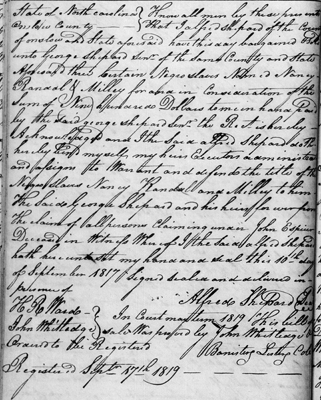 State of North Carolina } Know all men by these presents
Onslow County } that I Alfred Shepard of the County
of onslow and State aforesaid have this day bargained & sold
unto George Shepard Senr. of the same County and State
Aforesaid three Certain Negro Slaves Named Nancy
Randal & Milley for and in Consideration of the
Sum of Nine hundred Dollars to me in hand paid
by the said george Shepard Senr. the Rt. whereof
Acknowledged and I the said Alfred Shepard doth
hereby bind myself my heirs Executors administrators
and assigns to Warrant and defend the title of the
Negro Slaves Nancy Randal and Milley to him
the said George Shepard and his heirs from
the claim of all persons claiming under John
Deceased in Witness Whereof I the said alfred Shepard
hath hereunto set my hand and seal this 10th
of September 1817 Signed sealed and delivered in
presence of
H. R. Ward } Alfred Shepard
John Whitledge } In Court may term 1819 } This bill
of sale Was proved by John Whitledge &
Ordered to be Registered
Registered Septr. 17th 1819